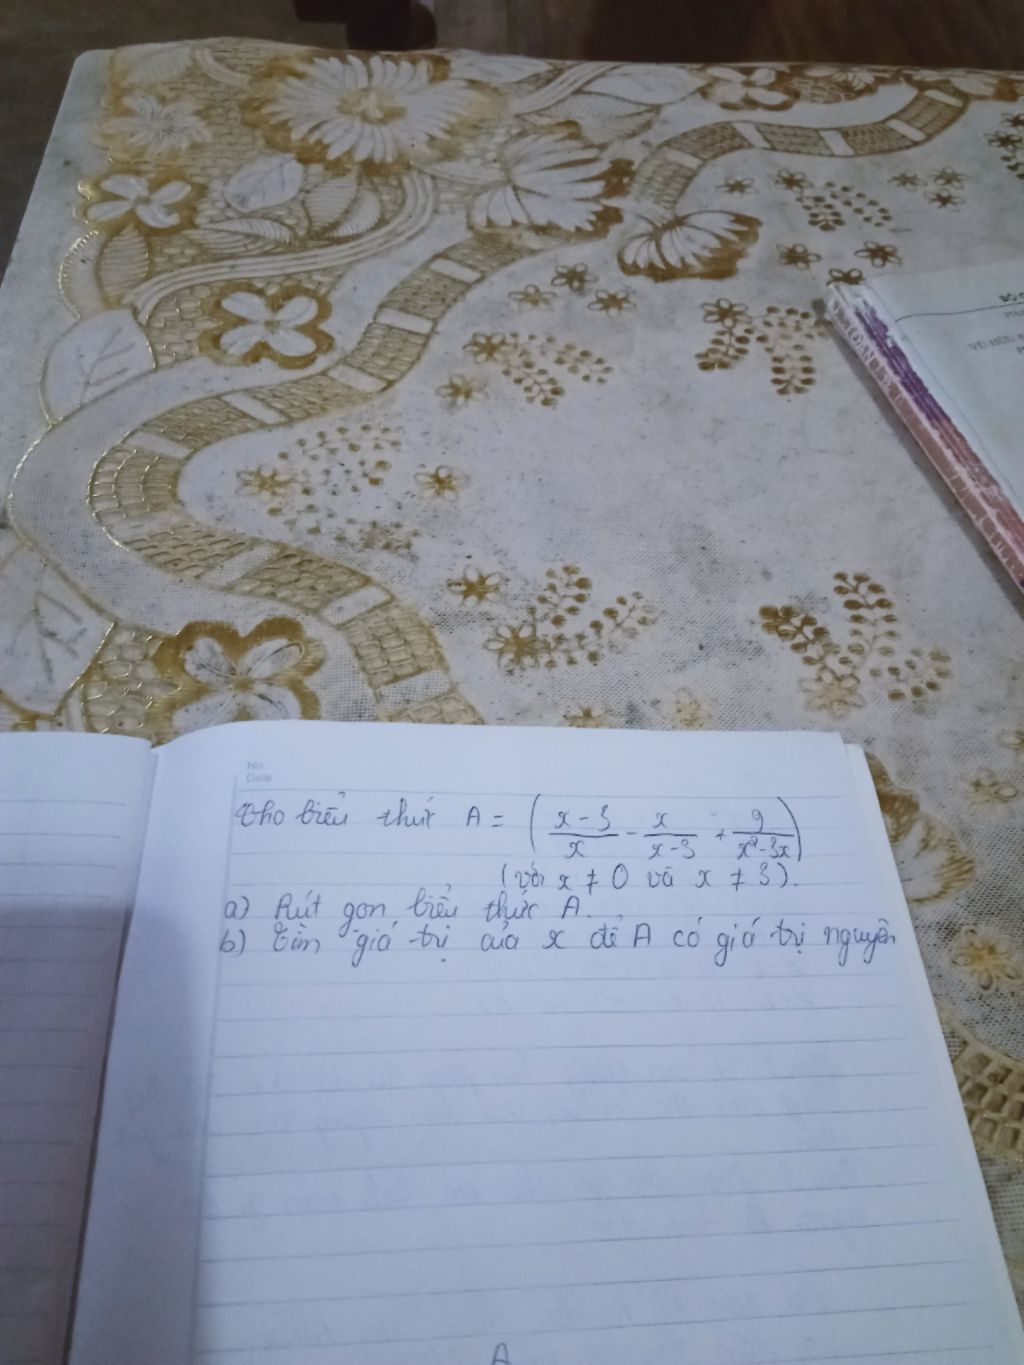 No.
Date
Cho biểu thức A = ( x-3/x - x/x-3 + 9/x²-3x )
(với x ≠ 0 và x ≠ 3).
a) Rút gọn biểu thức A.
b) Tìm giá trị của x để A có giá trị nguyên
A